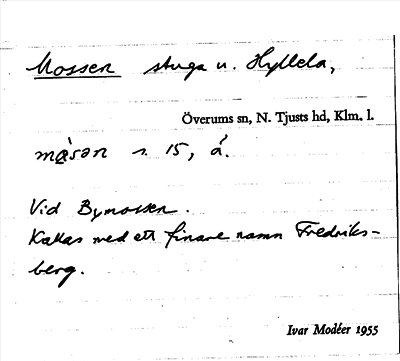 Mossen stuga u. Hyllela,
Överums sn, N. Tjusts hd, Klm. l.
s. 15, å.
Vid Bymossen.
Kallas med ett finare namn Fredriks-
berg.
Ivar Modéer 1955